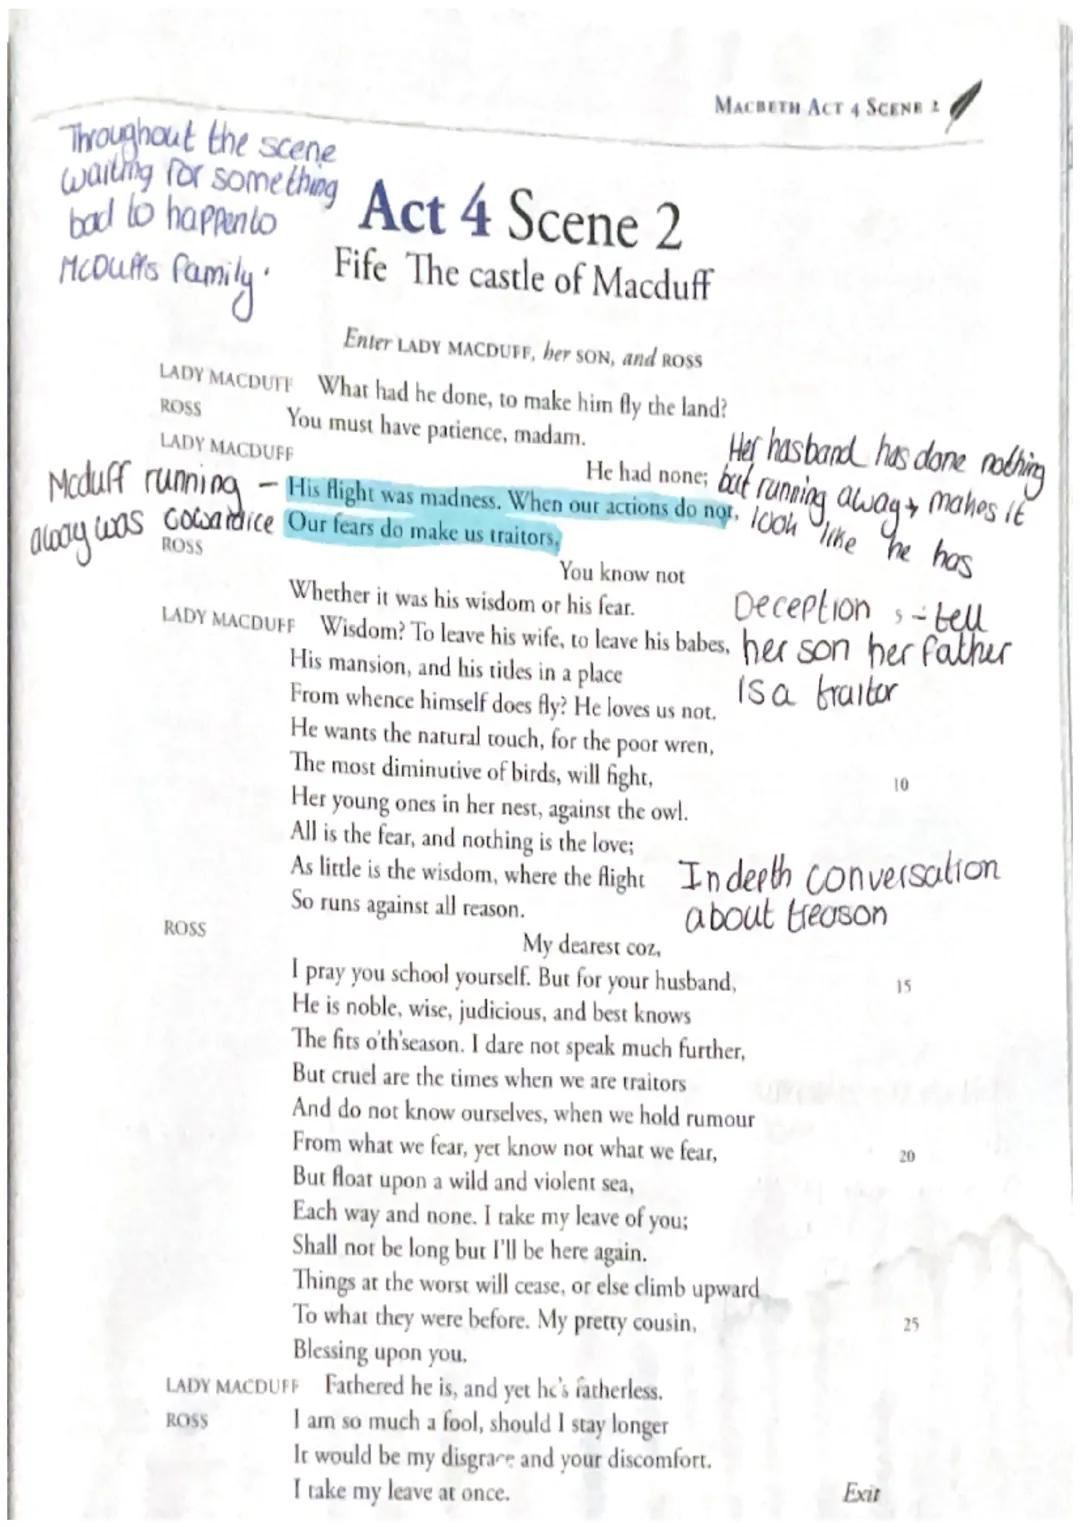 MACBETH ACT 4 SCENE 2
Throughout the scene
waiting for something
bad to happen to
McDuffs family.
Act 4 Scene 2
Fife The castle of Macduff
Enter LADY MACDUFF, her SON, and ROSS
LADY MACDUFF What had he done, to make him fly the land?
ROSS You must have patience, madam.
LADY MACDUFF He had none;
His flight was madness. When our actions do not,
Our fears do make us traitors.
Mcduff running –
away was cowardice
Her hasband has done nothing
but running away → makes it
look like he has
ROSS You know not
Whether it was his wisdom or his fear.
Deception , - tell
her son her father
is a traitor
LADY MACDUFF Wisdom? To leave his wife, to leave his babes,
His mansion, and his titles in a place
From whence himself does fly? He loves us not.
He wants the natural touch, for the poor wren,
The most diminutive of birds, will fight, 10
Her young ones in her nest, against the owl.
All is the fear, and nothing is the love;
As little is the wisdom, where the flight
So runs against all reason.
In depth conversation
about treason
ROSS My dearest coz,
I pray you school yourself. But for your husband, 15
He is noble, wise, judicious, and best knows
The fits o'th'season. I dare not speak much further,
But cruel are the times when we are traitors
And do not know ourselves, when we hold rumour
From what we fear, yet know not what we fear, 20
But float upon a wild and violent sea,
Each way and none. I take my leave of you;
Shall not be long but I'll be here again.
Things at the worst will cease, or else climb upward
To what they were before. My pretty cousin, 25
Blessing upon you.
LADY MACDUFF Fathered he is, and yet he's fatherless.
ROSS I am so much a fool, should I stay longer
It would be my disgrace and your discomfort.
I take my leave at once. Exit